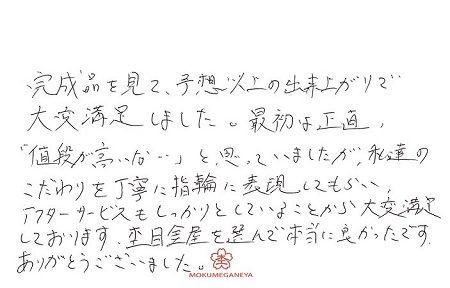 完成品を見て、予想以上の出来上がりで
大変満足しました。最初は正直、
「値段が高いな…」と思っていましたが、私達の
こだわりを丁寧に指輪に表現してもらい、
アフターサービスもしっかりとしていることから大変満足
しております。杢目金屋を選んで本当に良かったです。
ありがとうございました。
MOKUMEGANEYA